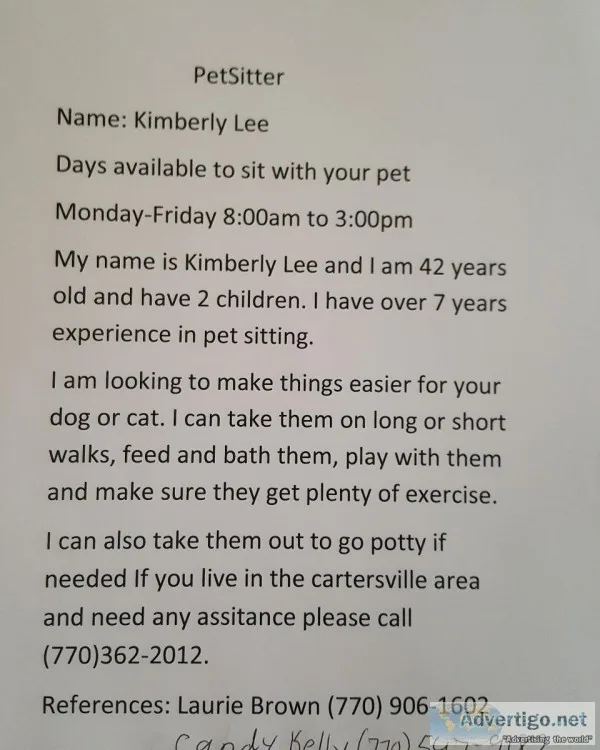 PetSitter
Name: Kimberly Lee
Days available to sit with your pet
Monday-Friday 8:00am to 3:00pm
My name is Kimberly Lee and I am 42 years
old and have 2 children. I have over 7 years
experience in pet sitting.
I am looking to make things easier for your
dog or cat. I can take them on long or short
walks, feed and bath them, play with them
and make sure they get plenty of exercise.
I can also take them out to go potty if
needed If you live in the cartersville area
and need any assitance please call
(770)362-2012.
References: Laurie Brown (770) 906-1602
Advertigo.net
"Advertising the world"
Candy Kelly (770)